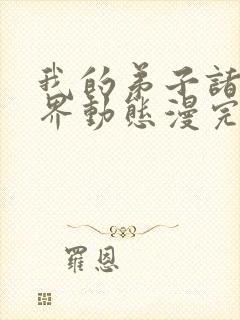 我的弟子諸
界動態漫完
羅恩